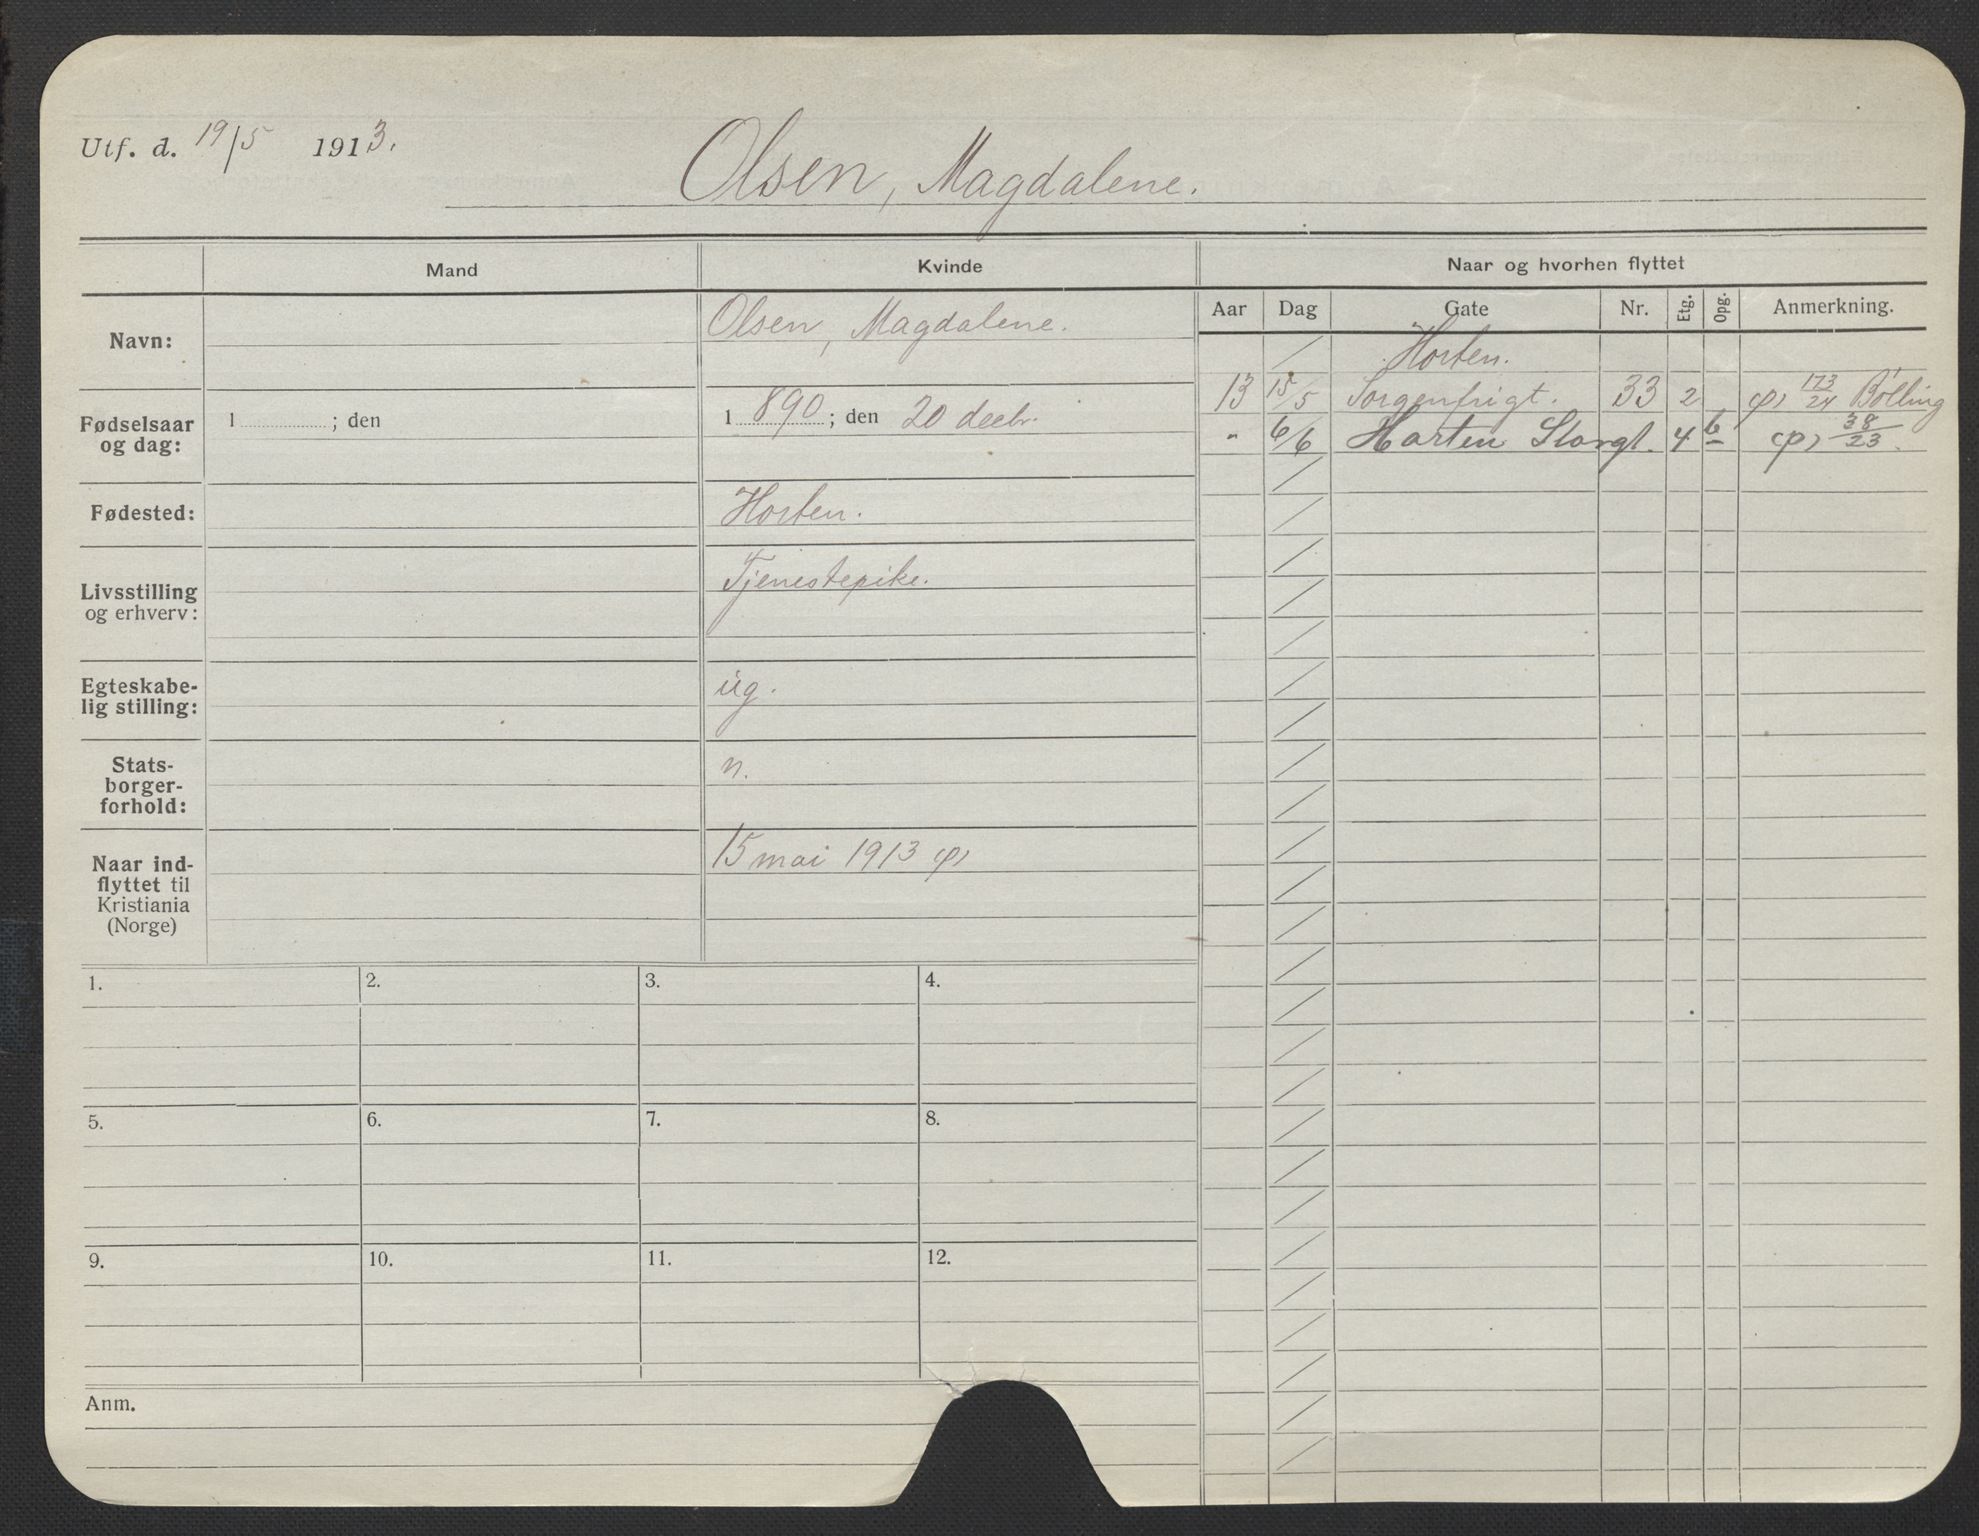 Utf. d. 19/5 1913.
Olsen, Magdalene.
Mand Kvinde Naar og hvorhen flyttet
Aar Dag Gate Nr. Etg. Opg. Anmerkning.
Navn: Olsen, Magdalene.
Horten.
13 15/5 Sorgenfrigt. 33 2 173/24 Bölling
Fødselsaar og dag: 1 ; den 1 890 ; den 20 decbr.
" 6/6 Horten Storgt. 4 b 38/23.
Fødested: Horten.
Livsstilling
og erhverv: Tjenestepike.
Egteskabe-
lig stilling: ug.
Stats-
borger-
forhold: n.
Naar ind-
flyttet til
Kristiania
(Norge) 15 mai 1913
1. 2. 3. 4.
5. 6. 7. 8.
9. 10. 11. 12.
Anm.